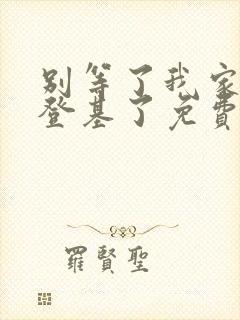 别等了我家
登基了免費
羅賢聖